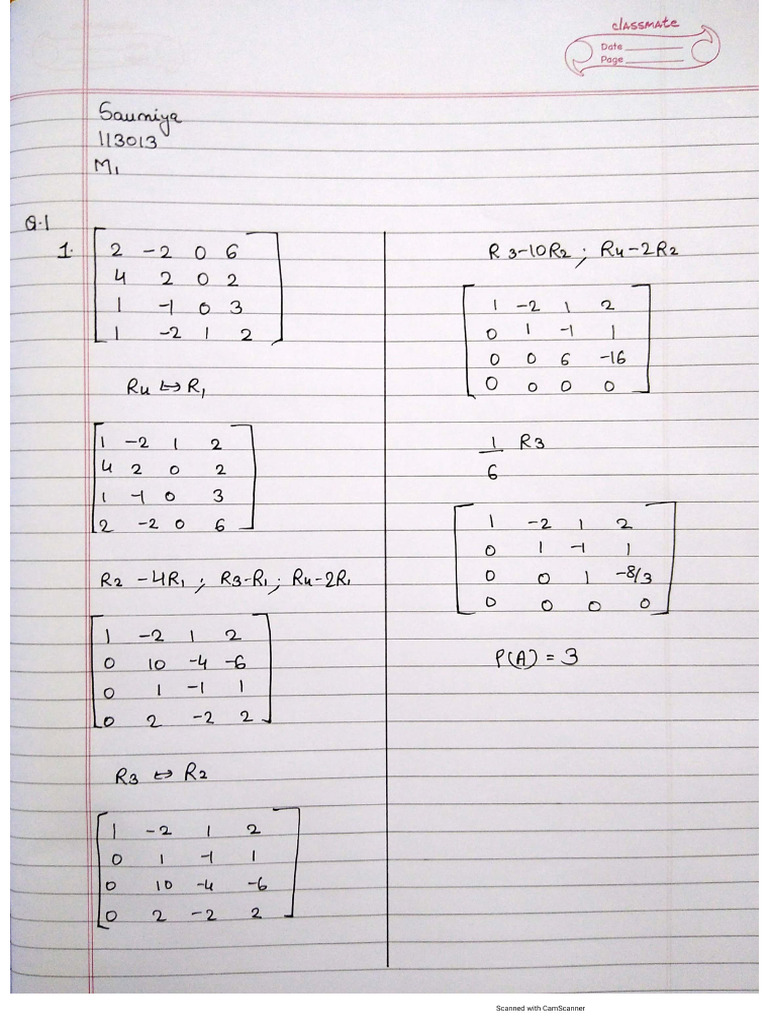 classmate
Date
Page
Saumiya
113013
M1
Q.1
1.
2 -2 0 6
4 2 0 2
1 -1 0 3
1 -2 1 2
R4 ↔ R1
1 -2 1 2
4 2 0 2
1 -1 0 3
2 -2 0 6
R2 -4R1 ; R3-R1 ; R4-2R1
1 -2 1 2
0 10 -4 -6
0 1 -1 1
0 2 -2 2
R3 ↔ R2
1 -2 1 2
0 1 -1 1
0 10 -4 -6
0 2 -2 2
R3-10R2 ; R4-2R2
1 -2 1 2
0 1 -1 1
0 0 6 -16
0 0 0 0
1/6 R3
1 -2 1 2
0 1 -1 1
0 0 1 -8/3
0 0 0 0
P(A) = 3
Scanned with CamScanner